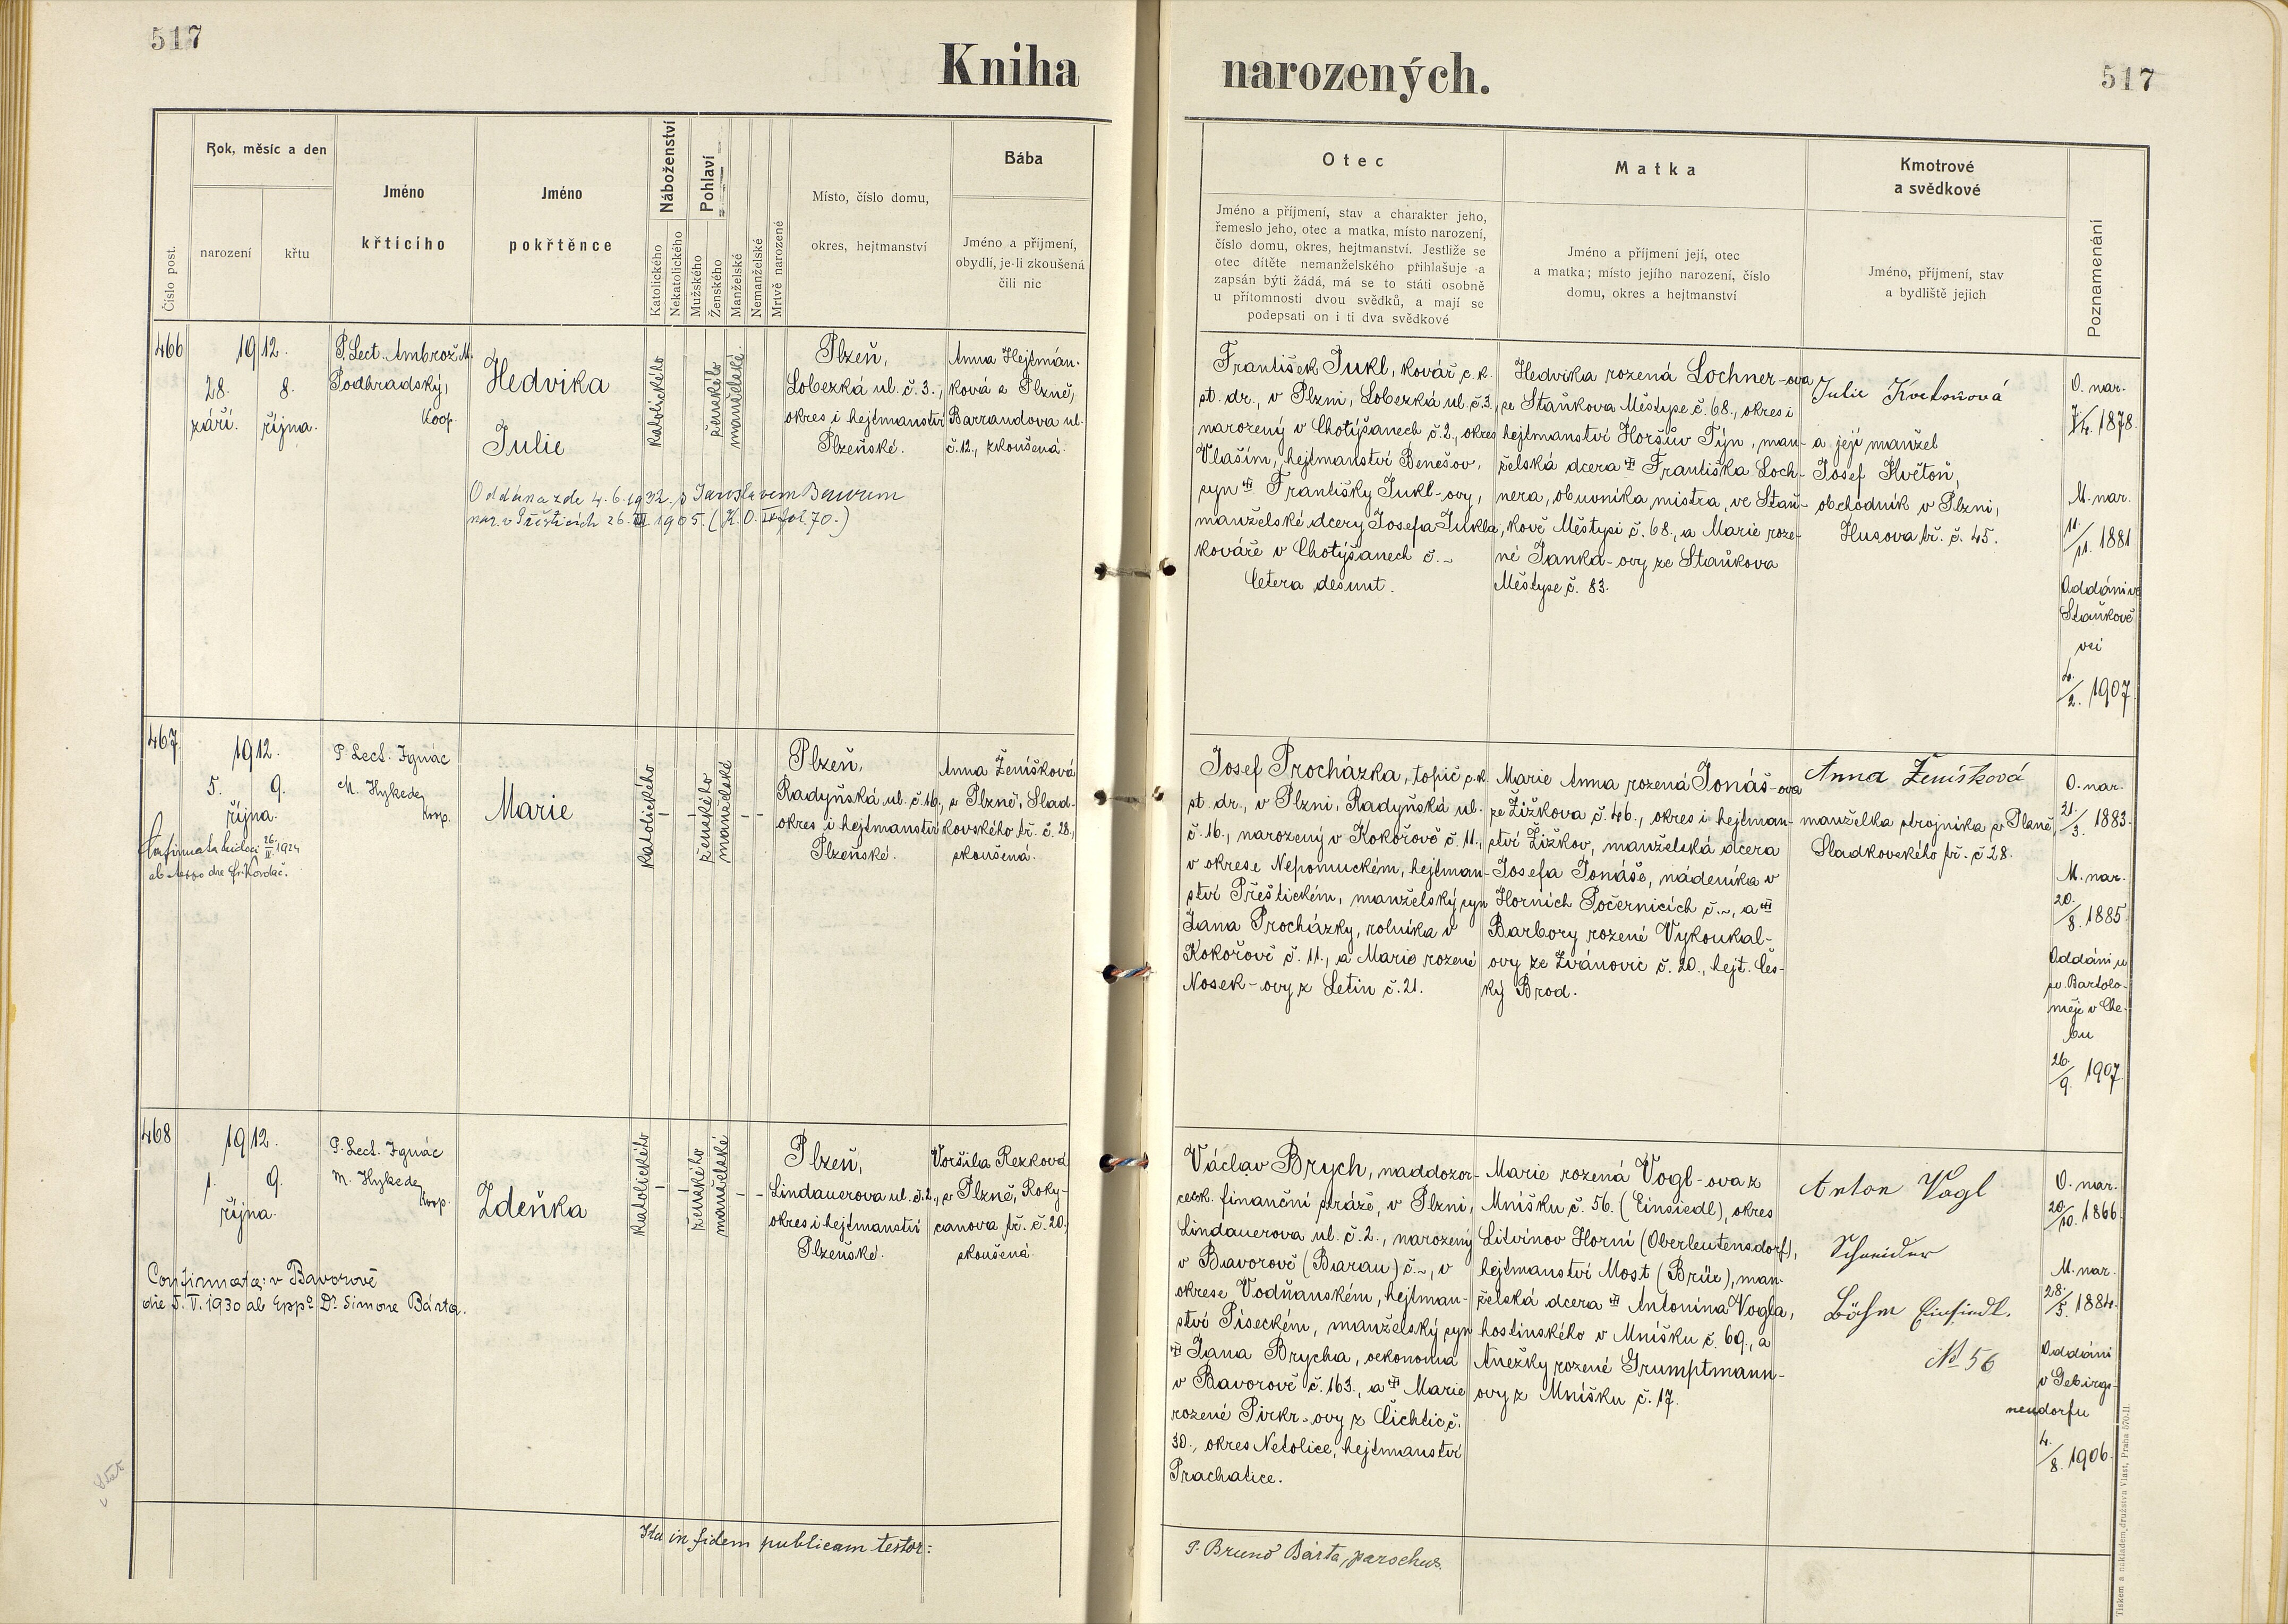 517
Kniha narozených.
517
Číslo post.
Rok, měsíc a den
narození
křtu
Jméno
křticího
Jméno
pokřtěnce
Náboženství
Katolického
Nekatolického
Pohlaví
Mužského
Ženského
Manželské
Nemanželské
Mrtvě narozené
Místo, číslo domu,
okres, hejtmanství
Bába
Jméno a příjmení,
obydlí, je-li zkoušená
čili nic
Otec
Jméno a příjmení, stav a charakter jeho,
řemeslo jeho, otec a matka, místo narození,
číslo domu, okres, hejtmanství. Jestliže se
otec dítěte nemanželského přihlašuje a
zapsán býti žádá, má se to státi osobně
u přítomnosti dvou svědků, a mají se
podepsati on i ti dva svědkové
Matka
Jméno a příjmení její, otec
a matka; místo jejího narození, číslo
domu, okres a hejtmanství
Kmotrové
a svědkové
Jméno, příjmení, stav
a bydliště jejich
Poznamenání
466
1912.
28. 8.
září. října.
P. Lect. Ambrož M.
Podhradský,
Koop.
Hedvika
Julie
Oddána zde 4.6.1932. s Jaroslavem Baurem
nar. v Přešticích 26. III 1905. (K.O. IX fol. 70.)
katolického
ženského
manželské.
Plzeň,
Lobezká ul. č. 3.,
okres i hejtmanství
Plzeňské.
Anna Hejtmán-
ková z Plzně,
Barrandova ul.
č. 12., zkoušená.
František Jukl, kovář c. k.
st. dr., v Plzni, Lobezká ul. č. 3.,
narozený v Chotýšanech č. 2., okres
Vlašim, hejtmanství Benešov,
syn † Františky Jukl-ovy,
manželské dcery Josefa Jukla,
kováře v Chotýšanech č. ~
Cetera desunt.
Hedvika rozená Lochner-ova
ze Staňkova Městyse č. 68., okres i
hejtmanství Horšův Týn, man-
želská dcera † Františka Loch-
nera, obuvníka mistra, ve Staň-
kově Městysi č. 68., a Marie roze-
né Janka-ovy ze Staňkova
Městyse č. 83.
Julie Květoňová
a její manžel
Josef Květoň,
obchodník v Plzni,
Husova tř. č. 45.
O. nar.
7./4. 1878.
M. nar.
11./11. 1881
Oddáni ve
Staňkově
vsi
4./2. 1907.
467.
1912.
5. 9.
října.
P. Lect. Ignác
M. Hykede,
Koop.
Marie
katolického
ženského
manželské
Plzeň,
Radyňská ul. č. 16.,
okres i hejtmanství
Plzeňské.
Anna Ženíšková
z Plzně, Slad-
kovského tř. č. 28.,
zkoušená.
Josef Procházka, topič c. k.
st. dr., v Plzni, Radyňská ul.
č. 16., narozený v Kokořově č. 11.,
v okrese Nepomuckém, hejtman-
ství Přeštickém, manželský syn
Jana Procházky, rolníka v
Kokořově č. 11., a Marie rozené
Nosek-ovy z Letin č. 21.
Marie Anna rozená Jonáš-ova
ze Žižkova č. 46., okres i hejtman-
ství Žižkov, manželská dcera
Josefa Jonáše, nádeníka v
Horních Počernicích č. ~, a †
Barbory rozené Vykoukal-
ovy ze Zvánovic č. 20., hejt. Čes-
ký Brod.
Anna Ženíšková
manželka strojníka z Plzně,
Sladkovského tř. č. 28.
O. nar.
21./3. 1883.
M. nar.
20./8. 1885.
Oddáni u
sv. Bartolo-
měje v Che-
bu
26./9. 1907.
468
1912.
1. 9.
října.
P. Lect. Ignác
M. Hykede,
Koop.
Zdeňka
Confirmata: v Bavorově
die 5. V. 1930 ab Eppo Dr. Simone Bárta.
katolického
ženského
manželské
Plzeň,
Lindauerova ul. č. 2.,
okres i hejtmanství
Plzeňské.
Voršila Rezková
z Plzně, Roky-
canova tř. č. 20.,
zkoušená.
Václav Brych, naddozor-
ce c. k. finanční stráže, v Plzni,
Lindauerova ul. č. 2., narozený
v Bavorově (Barau) č. ~, v
okrese Vodňanském, hejtman-
ství Píseckém, manželský syn
† Jana Brycha, oekonoma
v Bavorově č. 163., a † Marie
rozené Pirkr-ovy z Čichtic č.
30., okres Netolice, hejtmanství
Prachatice.
Marie rozená Vogl-ova z
Mníšku č. 56. (Einsiedl), okres
Litvínov Horní (Oberleutensdorf),
hejtmanství Most (Brüx), man-
želská dcera † Antonína Vogla,
hostinského v Mníšku č. 69., a
Anežky rozené Grumptmann-
ovy z Mníšku č. 17.
Anton Vogl
Schneider
Böhm Einsiedl.
No 56
O. nar.
20./10. 1866.
M. nar.
28./5. 1884.
Oddáni
v Gebirgs-
neudorfu
4./8. 1906.
Ita in fidem publicam testor:
P. Bruno Bárta, parochus.
Tiskem a nákladem družstva Vlast, Praha 570-II.